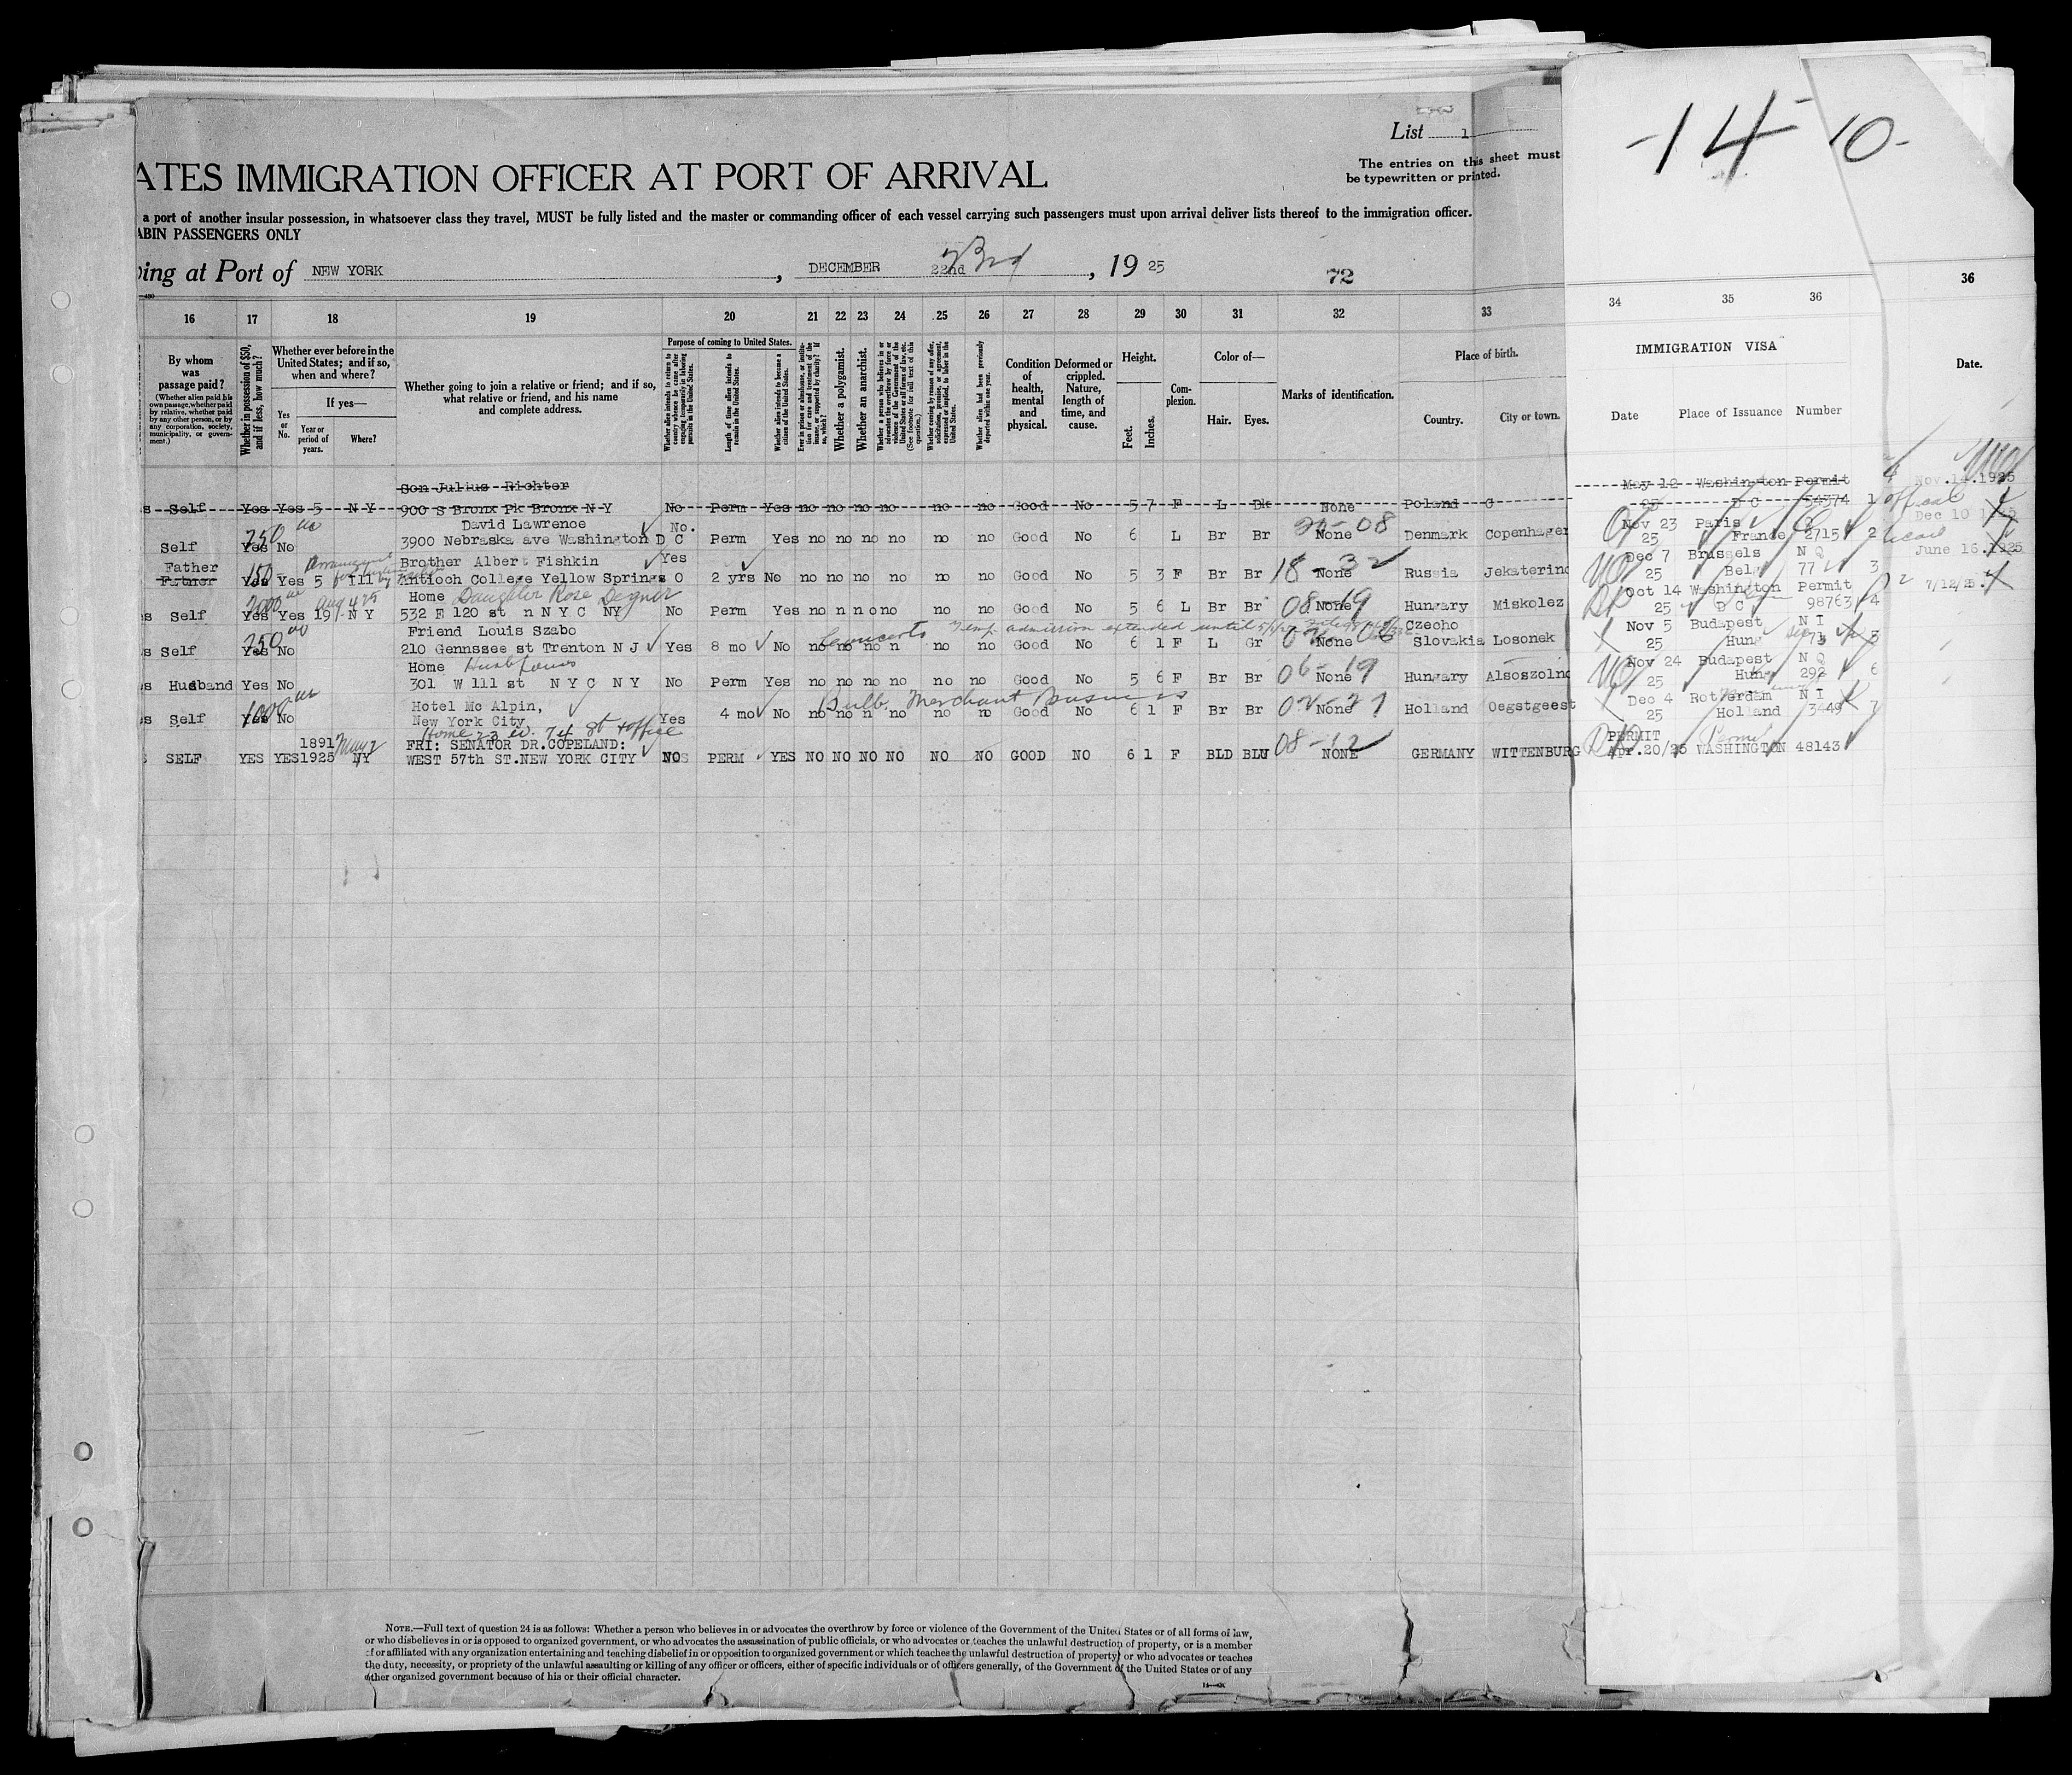 List 1
-14- 10-
The entries on this sheet must
be typewritten or printed.
ATES IMMIGRATION OFFICER AT PORT OF ARRIVAL
a port of another insular possession, in whatsoever class they travel, MUST be fully listed and the master or commanding officer of each vessel carrying such passengers must upon arrival deliver lists thereof to the immigration officer.
ABIN PASSENGERS ONLY
ing at Port of NEW YORK, DECEMBER 22nd 23rd, 1925
72
16 17 18 19 20 21 22 23 24 25 26 27 28 29 30 31 32 33 34 35 36 36
By whom was passage paid?
(Whether alien paid his own passage, whether paid by relative, whether paid by any other person, or by any corporation, society, municipality, or government.)
Whether in possession of $50, and if less, how much?
Whether ever before in the United States; and if so, when and where?
Yes or No.
If yes—
Year or period of years.
Where?
Whether going to join a relative or friend; and if so, what relative or friend, and his name and complete address.
Purpose of coming to United States.
Whether alien intends to return to country whence he came after engaging temporarily in laboring pursuits in the United States.
Length of time alien intends to remain in the United States.
Whether alien intends to become a citizen of the United States.
Ever in prison or almshouse, or institution for care and treatment of the insane, or supported by charity? If so, which?
Whether a polygamist.
Whether an anarchist.
Whether a person who believes in or advocates the overthrow by force or violence of the Government of the United States or all forms of law, etc. (See footnote for full text of this question.)
Whether coming by reason of any offer, solicitation, promise, or agreement, expressed or implied, to labor in the United States.
Whether alien had been previously deported within one year.
Condition of health, mental and physical.
Deformed or crippled. Nature, length of time, and cause.
Height.
Feet.
Inches.
Complexion.
Color of—
Hair.
Eyes.
Marks of identification.
Place of birth.
Country.
City or town.
IMMIGRATION VISA
Date Place of Issuance Number
Date.
Son Julius Richter
s Self Yes Yes 5 N Y 900 S Bronx Pk Bronx N Y No Perm Yes no no no no no no Good No 5 7 F L Dk None Poland G
May 12 Washington Permit
25 D C 54374 1
Nov.14.1925
David Lawrence
Self 250 00 Yes No 3900 Nebraska ave Washington D C No. Perm Yes no no no no no no Good No 6 L Br Br None 20-08 Denmark Copenhagen
Nov 23 Paris
25 France 2715 2
Dec 10 1925
Father Brother Albert Fishkin
Father 150 Yes Yes 5 Ill Antioch College Yellow Springs O Yes 2 yrs No no no no no no no Good No 5 3 F Br Br None 18-32 Russia Jekaterino
Dec 7 Brussels N Q
25 Belg 77 3
June 16.1925
Home Daughter Rose
s Self 2000 00 Yes Yes 19 - N Y Aug 4 25 532 E 120 st n N Y C NY No Perm Yes no n n o no no no Good No 5 6 L Br Br None 08-19 Hungary Miskolez
Oct 14 Washington Permit
25 D C 98763 4
7/12/25.
Friend Louis Szabo
s Self 250 00 Yes No 210 Gennssee st Trenton N J Yes 8 mo No no no no n no no Good No 6 1 F L Gr None Czecho Slovakia Losonek
Concerts Temp. admission extended until
Nov 5 Budapest N I
25 Hung 73 5
Home Husb
s Husband Yes No 301 W 111 st N Y C N Y No Perm Yes no no no no no no Good No 5 6 F Br Br None 06-19 Hungary Alsoszolno
Nov 24 Budapest N Q
25 Hung 292 6
Hotel Mc Alpin,
s Self 1000 00 Yes No New York City Yes 4 mo No no no n no no no Good No 6 1 F Br Br None Holland Oegstgeest
Bulb Merchant Business
Dec 4 Rotterdam N I
25 Holland 3449 7
Home 23 W. 74 St + office
1891 May 2 FRI: SENATOR DR.COPELAND:
SELF YES YES 1925 NY WEST 57th ST.NEW YORK CITY NO PERM YES NO NO NO NO NO NO GOOD NO 6 1 F BLD BLU NONE 08-12 GERMANY WITTENBURG
PERMIT
Apr.20/25 WASHINGTON 48143
NOTE.—Full text of question 24 is as follows: Whether a person who believes in or advocates the overthrow by force or violence of the Government of the United States or of all forms of law,
or who disbelieves in or is opposed to organized government, or who advocates the assassination of public officials, or who advocates or teaches the unlawful destruction of property, or is a member
of or affiliated with any organization entertaining and teaching disbelief in or opposition to organized government or which teaches the unlawful destruction of property, or who advocates or teaches
the duty, necessity, or propriety of the unlawful assaulting or killing of any officer or officers, either of specific individuals or of officers generally, of the Government of the United States or of any
other organized government because of his or their official character.